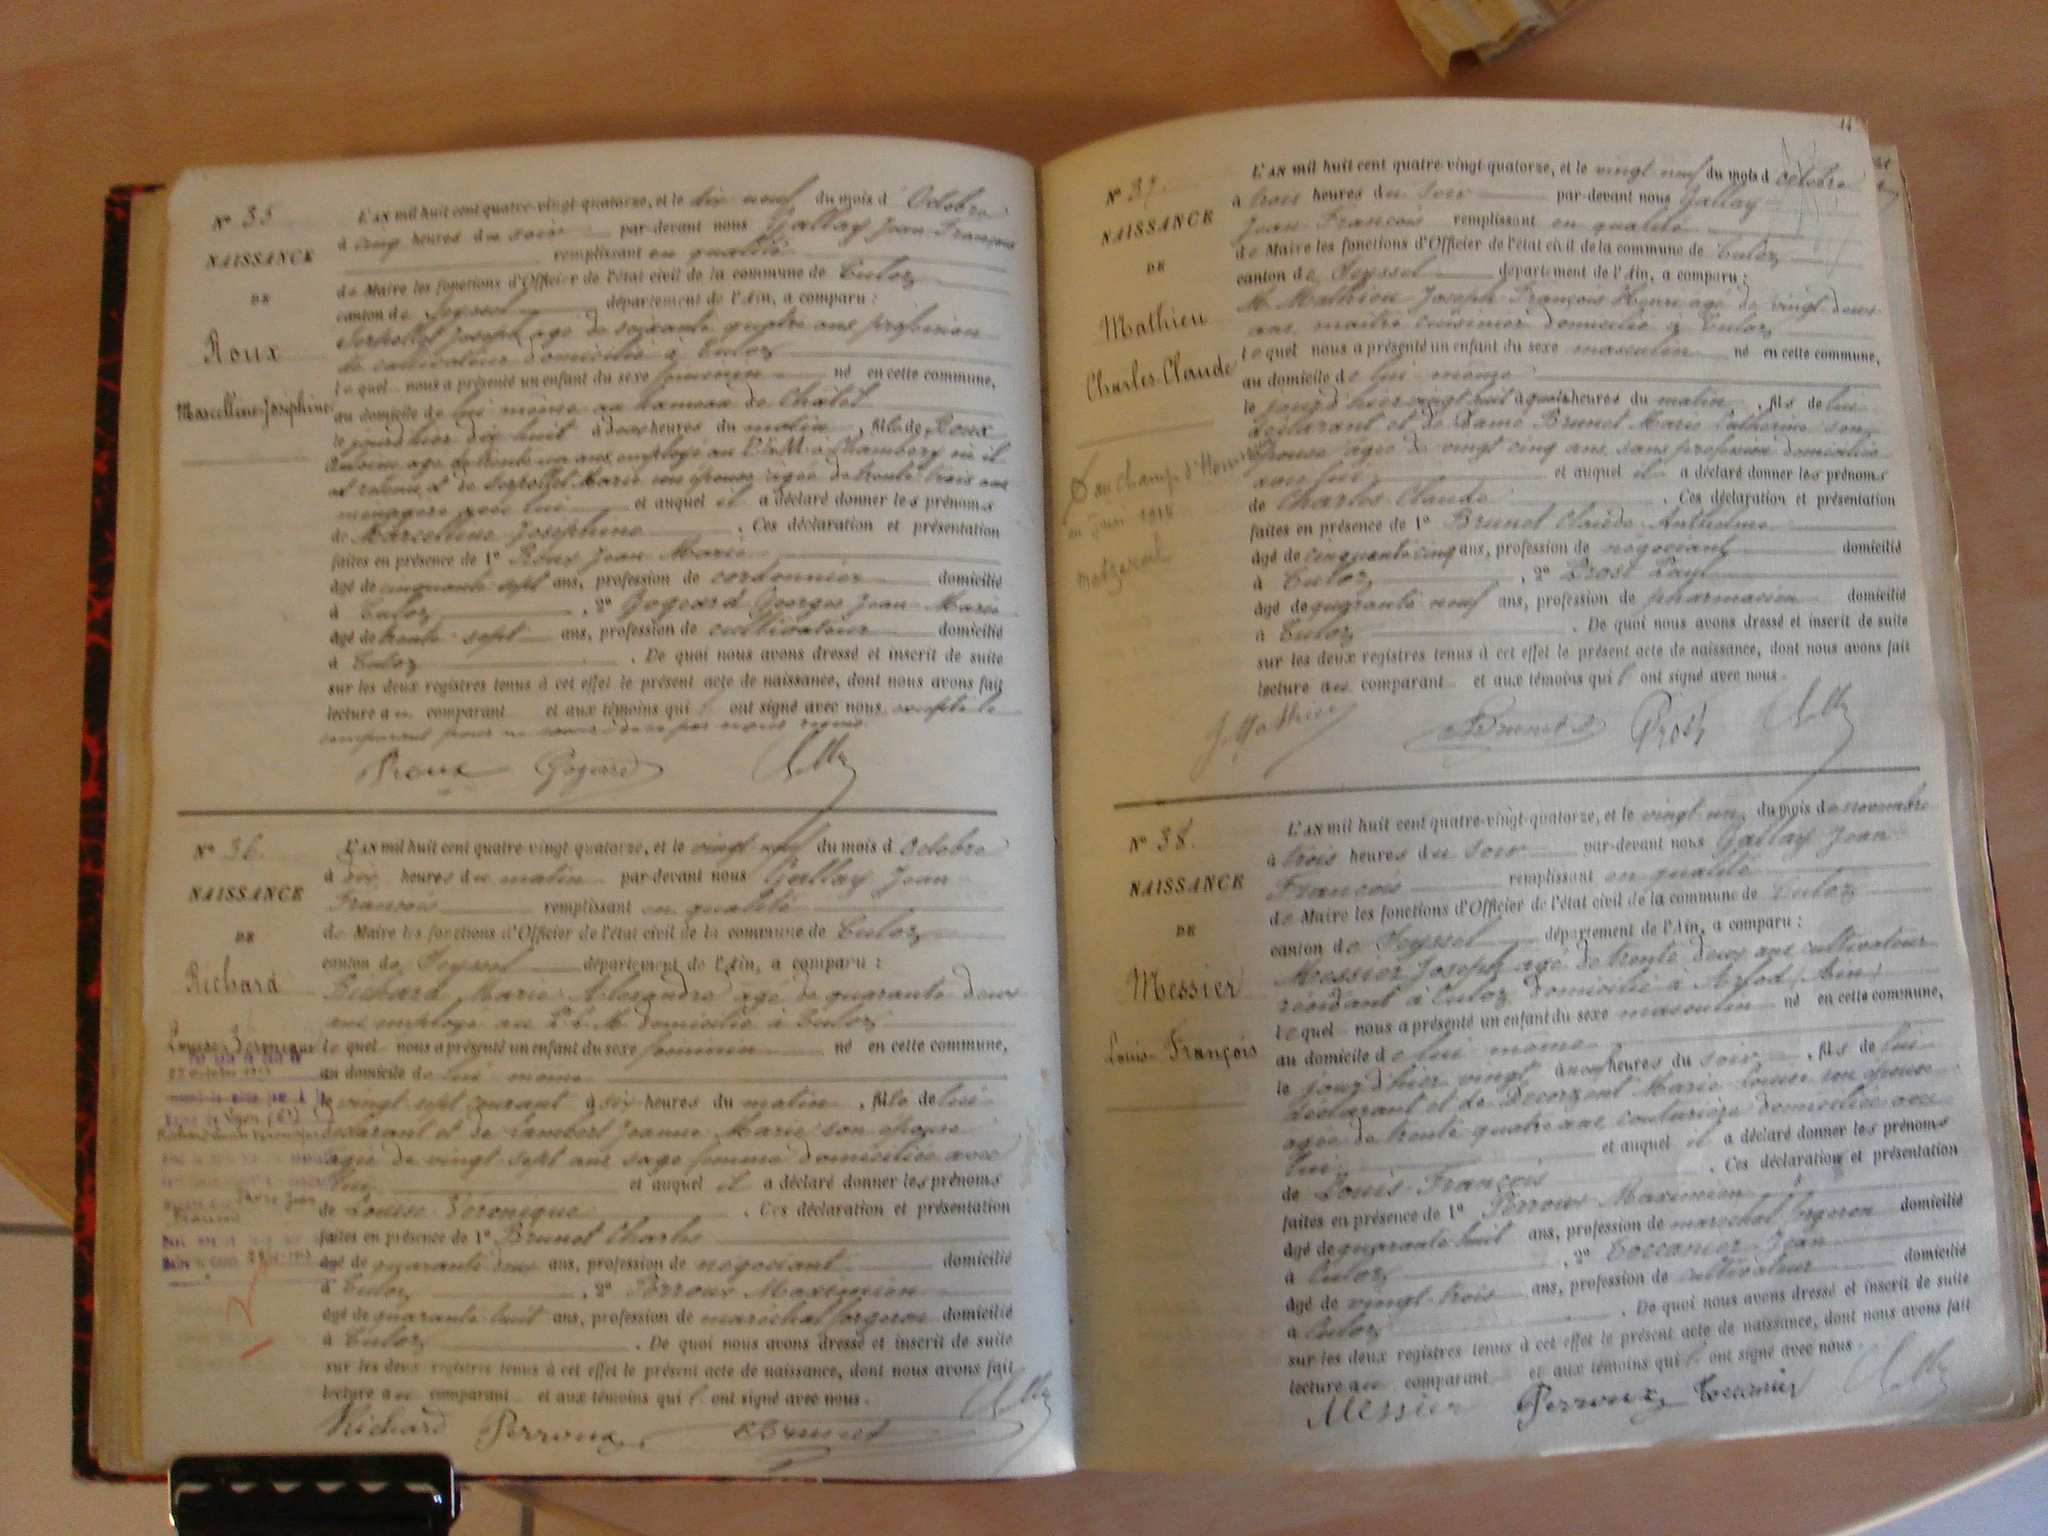 N° 35
NAISSANCE
DE
Roux
Marcelline Joséphine
L'AN mil huit cent quatre-vingt-quatorze, et le dix neuf du mois d'Octobre
à cinq heures du soir par-devant nous Gallay Jean François
remplissant en qualité
de Maire les fonctions d'Officier de l'état civil de la commune de Culoz
canton de Seyssel département de l'Ain, a comparu :
Serpollet Joseph âgé de soixante quatre ans profession
de cultivateur domicilié à Culoz
lequel nous a présenté un enfant du sexe féminin né en cette commune,
au domicile de lui même au hameau de Châtel
le jour d'hier dix huit à heures du matin, fille de Roux
Antoine âgé de trente un ans employé au P.L.M. à Chambéry où il
est retenu, et de Serpollet Marie son épouse âgée de trente trois ans
ménagère avec lui et auquel il a déclaré donner les prénoms
de Marcelline Joséphine . Ces déclaration et présentation
faites en présence de 1° Roux Jean Marie
âgé de cinquante sept ans, profession de cordonnier domicilié
à Culoz , 2° Gogeard Georges Jean Marie
âgé de trente sept ans, profession de cultivateur domicilié
à Culoz . De quoi nous avons dressé et inscrit de suite
sur les deux registres tenus à cet effet le présent acte de naissance, dont nous avons fait
lecture au comparant et aux témoins qui ont signé avec nous excepté le
comparant pour ne savoir de ce par nous requis
Roux Gogeard
N° 36.
NAISSANCE
DE
Richard
Louise Véronique
L'AN mil huit cent quatre-vingt-quatorze, et le vingt neuf du mois d'Octobre
à dix heures du matin par-devant nous Gallay Jean
François remplissant en qualité
de Maire les fonctions d'Officier de l'état civil de la commune de Culoz
canton de Seyssel département de l'Ain, a comparu :
Richard Marie Alexandre âgé de quarante deux
ans employé au P.L.M. domicilié à Culoz
lequel nous a présenté un enfant du sexe féminin né en cette commune,
au domicile de lui même
le vingt sept courant à six heures du matin, fille de lui
déclarant et de Lambert Jeanne Marie son épouse
âgée de vingt sept ans sage femme domiciliée avec
lui et auquel il a déclaré donner les prénoms
de Louise Véronique . Ces déclaration et présentation
faites en présence de 1° Brunet Charles
âgé de quarante deux ans, profession de négociant domicilié
à Culoz , 2° Perroux Maximien
âgé de quarante huit ans, profession de maréchal forgeron domicilié
à Culoz . De quoi nous avons dressé et inscrit de suite
sur les deux registres tenus à cet effet le présent acte de naissance, dont nous avons fait
lecture au comparant et aux témoins qui l'ont signé avec nous.
Richard Perroux Brunet
14
N° 37.
NAISSANCE
DE
Mathieu
Charles Claude
au champ d'Honneur
en Juin 1915
Metzeral
L'AN mil huit cent quatre-vingt-quatorze, et le vingt neuf du mois d'octobre
à trois heures du soir par-devant nous Gallay
Jean François remplissant en qualité
de Maire les fonctions d'Officier de l'état civil de la commune de Culoz
canton de Seyssel département de l'Ain, a comparu :
M. Mathieu Joseph François Henri âgé de vingt deux
ans maître cuisinier domicilié à Culoz
lequel nous a présenté un enfant du sexe masculin né en cette commune,
au domicile de lui même
le jour d'hier vingt huit à heures du matin, fils de lui
déclarant et de Dame Brunet Marie Catherine son
épouse âgée de vingt cinq ans sans profession domiciliée
avec lui et auquel il a déclaré donner les prénoms
de Charles Claude . Ces déclaration et présentation
faites en présence de 1° Brunet Claude Anthelme
âgé de cinquante cinq ans, profession de négociant domicilié
à Culoz , 2° Prost Paul
âgé de quarante neuf ans, profession de pharmacien domicilié
à Culoz . De quoi nous avons dressé et inscrit de suite
sur les deux registres tenus à cet effet le présent acte de naissance, dont nous avons fait
lecture au comparant et aux témoins qui l'ont signé avec nous.
J. Mathieu Brunet Prost
N° 38.
NAISSANCE
DE
Messier
Louis François
L'AN mil huit cent quatre-vingt-quatorze, et le vingt un du mois de novembre
à trois heures du soir par-devant nous Gallay Jean
François remplissant en qualité
de Maire les fonctions d'Officier de l'état civil de la commune de Culoz
canton de Seyssel département de l'Ain, a comparu :
Messier Joseph âgé de trente deux ans cultivateur
résidant à Culoz domicilié à (Ain)
lequel nous a présenté un enfant du sexe masculin né en cette commune,
au domicile de lui même
le jour d'hier vingt à neuf heures du soir, fils de lui
déclarant et de Decorzent Marie Louise son épouse
âgée de trente quatre ans couturière domiciliée avec
lui et auquel il a déclaré donner les prénoms
de Louis François . Ces déclaration et présentation
faites en présence de 1° Perroux Maximien
âgé de quarante huit ans, profession de maréchal forgeron domicilié
à Culoz , 2° Coccanier Jean
âgé de vingt trois ans, profession de cultivateur domicilié
à Culoz . De quoi nous avons dressé et inscrit de suite
sur les deux registres tenus à cet effet le présent acte de naissance, dont nous avons fait
lecture au comparant et aux témoins qui l'ont signé avec nous.
Messier Perroux Coccanier